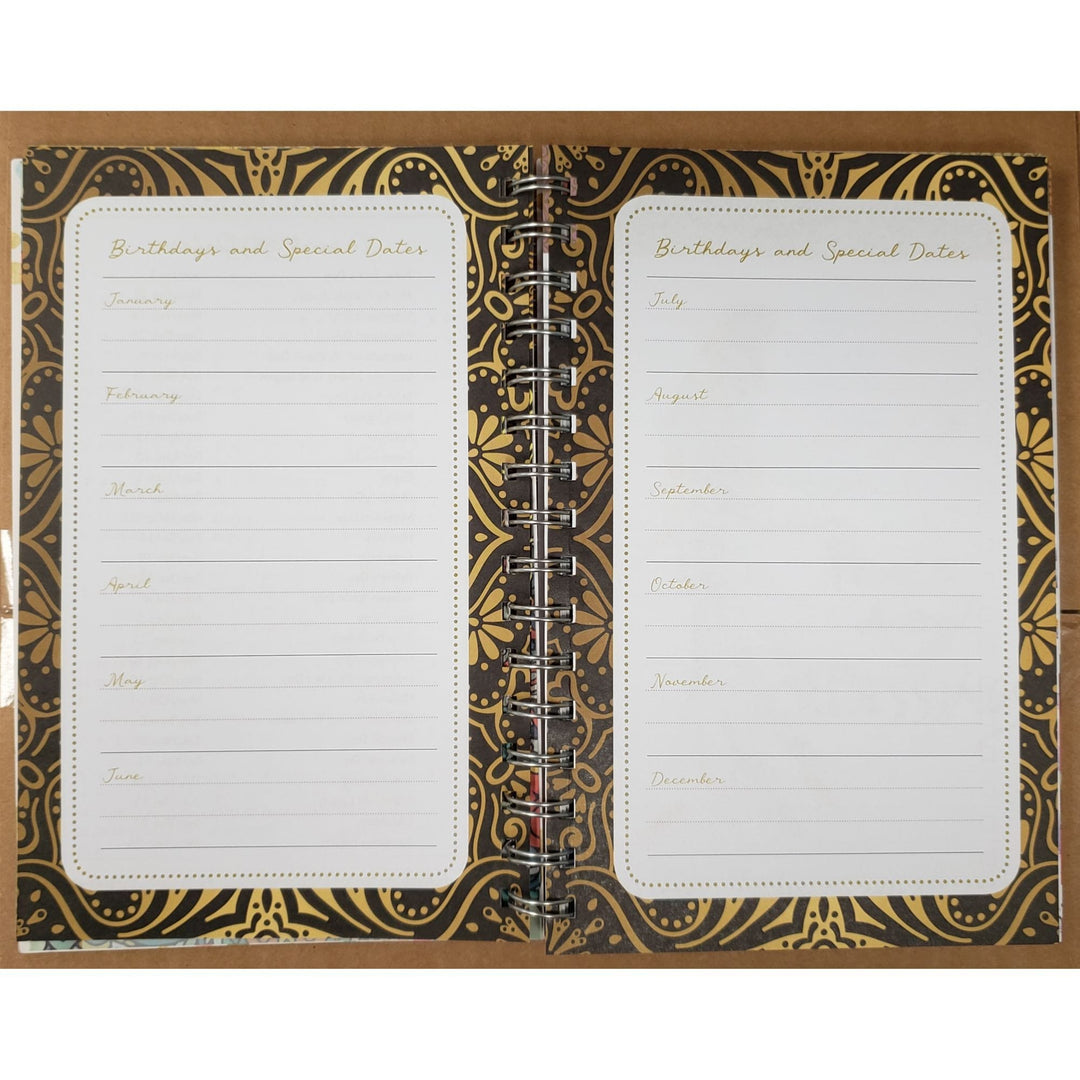 Birthdays and Special Dates
January
February
March
April
May
June
Birthdays and Special Dates
July
August
September
October
November
December